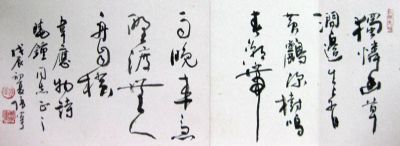 獨憐幽草
澗邊生上有
黃鸝深樹鳴
春潮帶
雨晚來急
野渡無人
舟自橫
韋應物詩
鐘同志正之
戊辰初夏